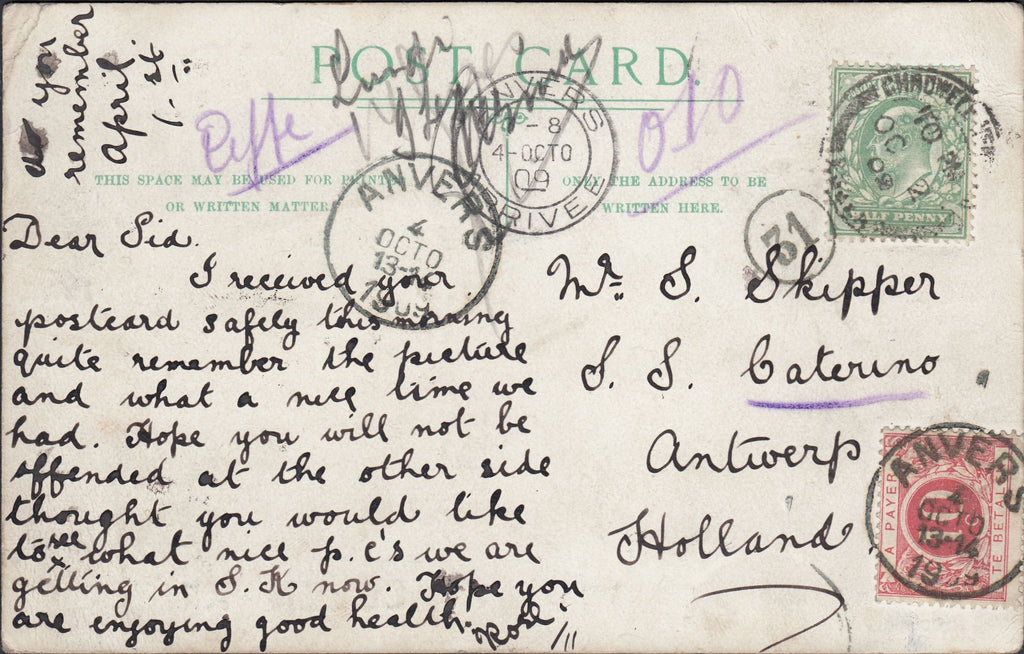 do you
remember
April
1st
POST CARD.
010
THIS SPACE MAY BE USED FOR PRINTED
OR WRITTEN MATTER.
ONLY THE ADDRESS TO BE
WRITTEN HERE.
ANVERS
8
4-OCTO
09
ARRIVEE
ANVERS
4
OCTO
13-14
1909
31
CHADWELL
OC 2
09
HALF PENNY
Dear Sid.
I received your
postcard safely this morning
quite remember the picture
and what a nice time we
had. Hope you will not be
offended at the other side
thought you would like
to see what nice p.c's we are
getting in S.K now. Hope you
are enjoying good health.
Mr. S. Skipper
S. S. Caterino
Antwerp
Holland
A PAYER
TE BETALEN
10
ANVERS
4
OCTO
13-14
1909